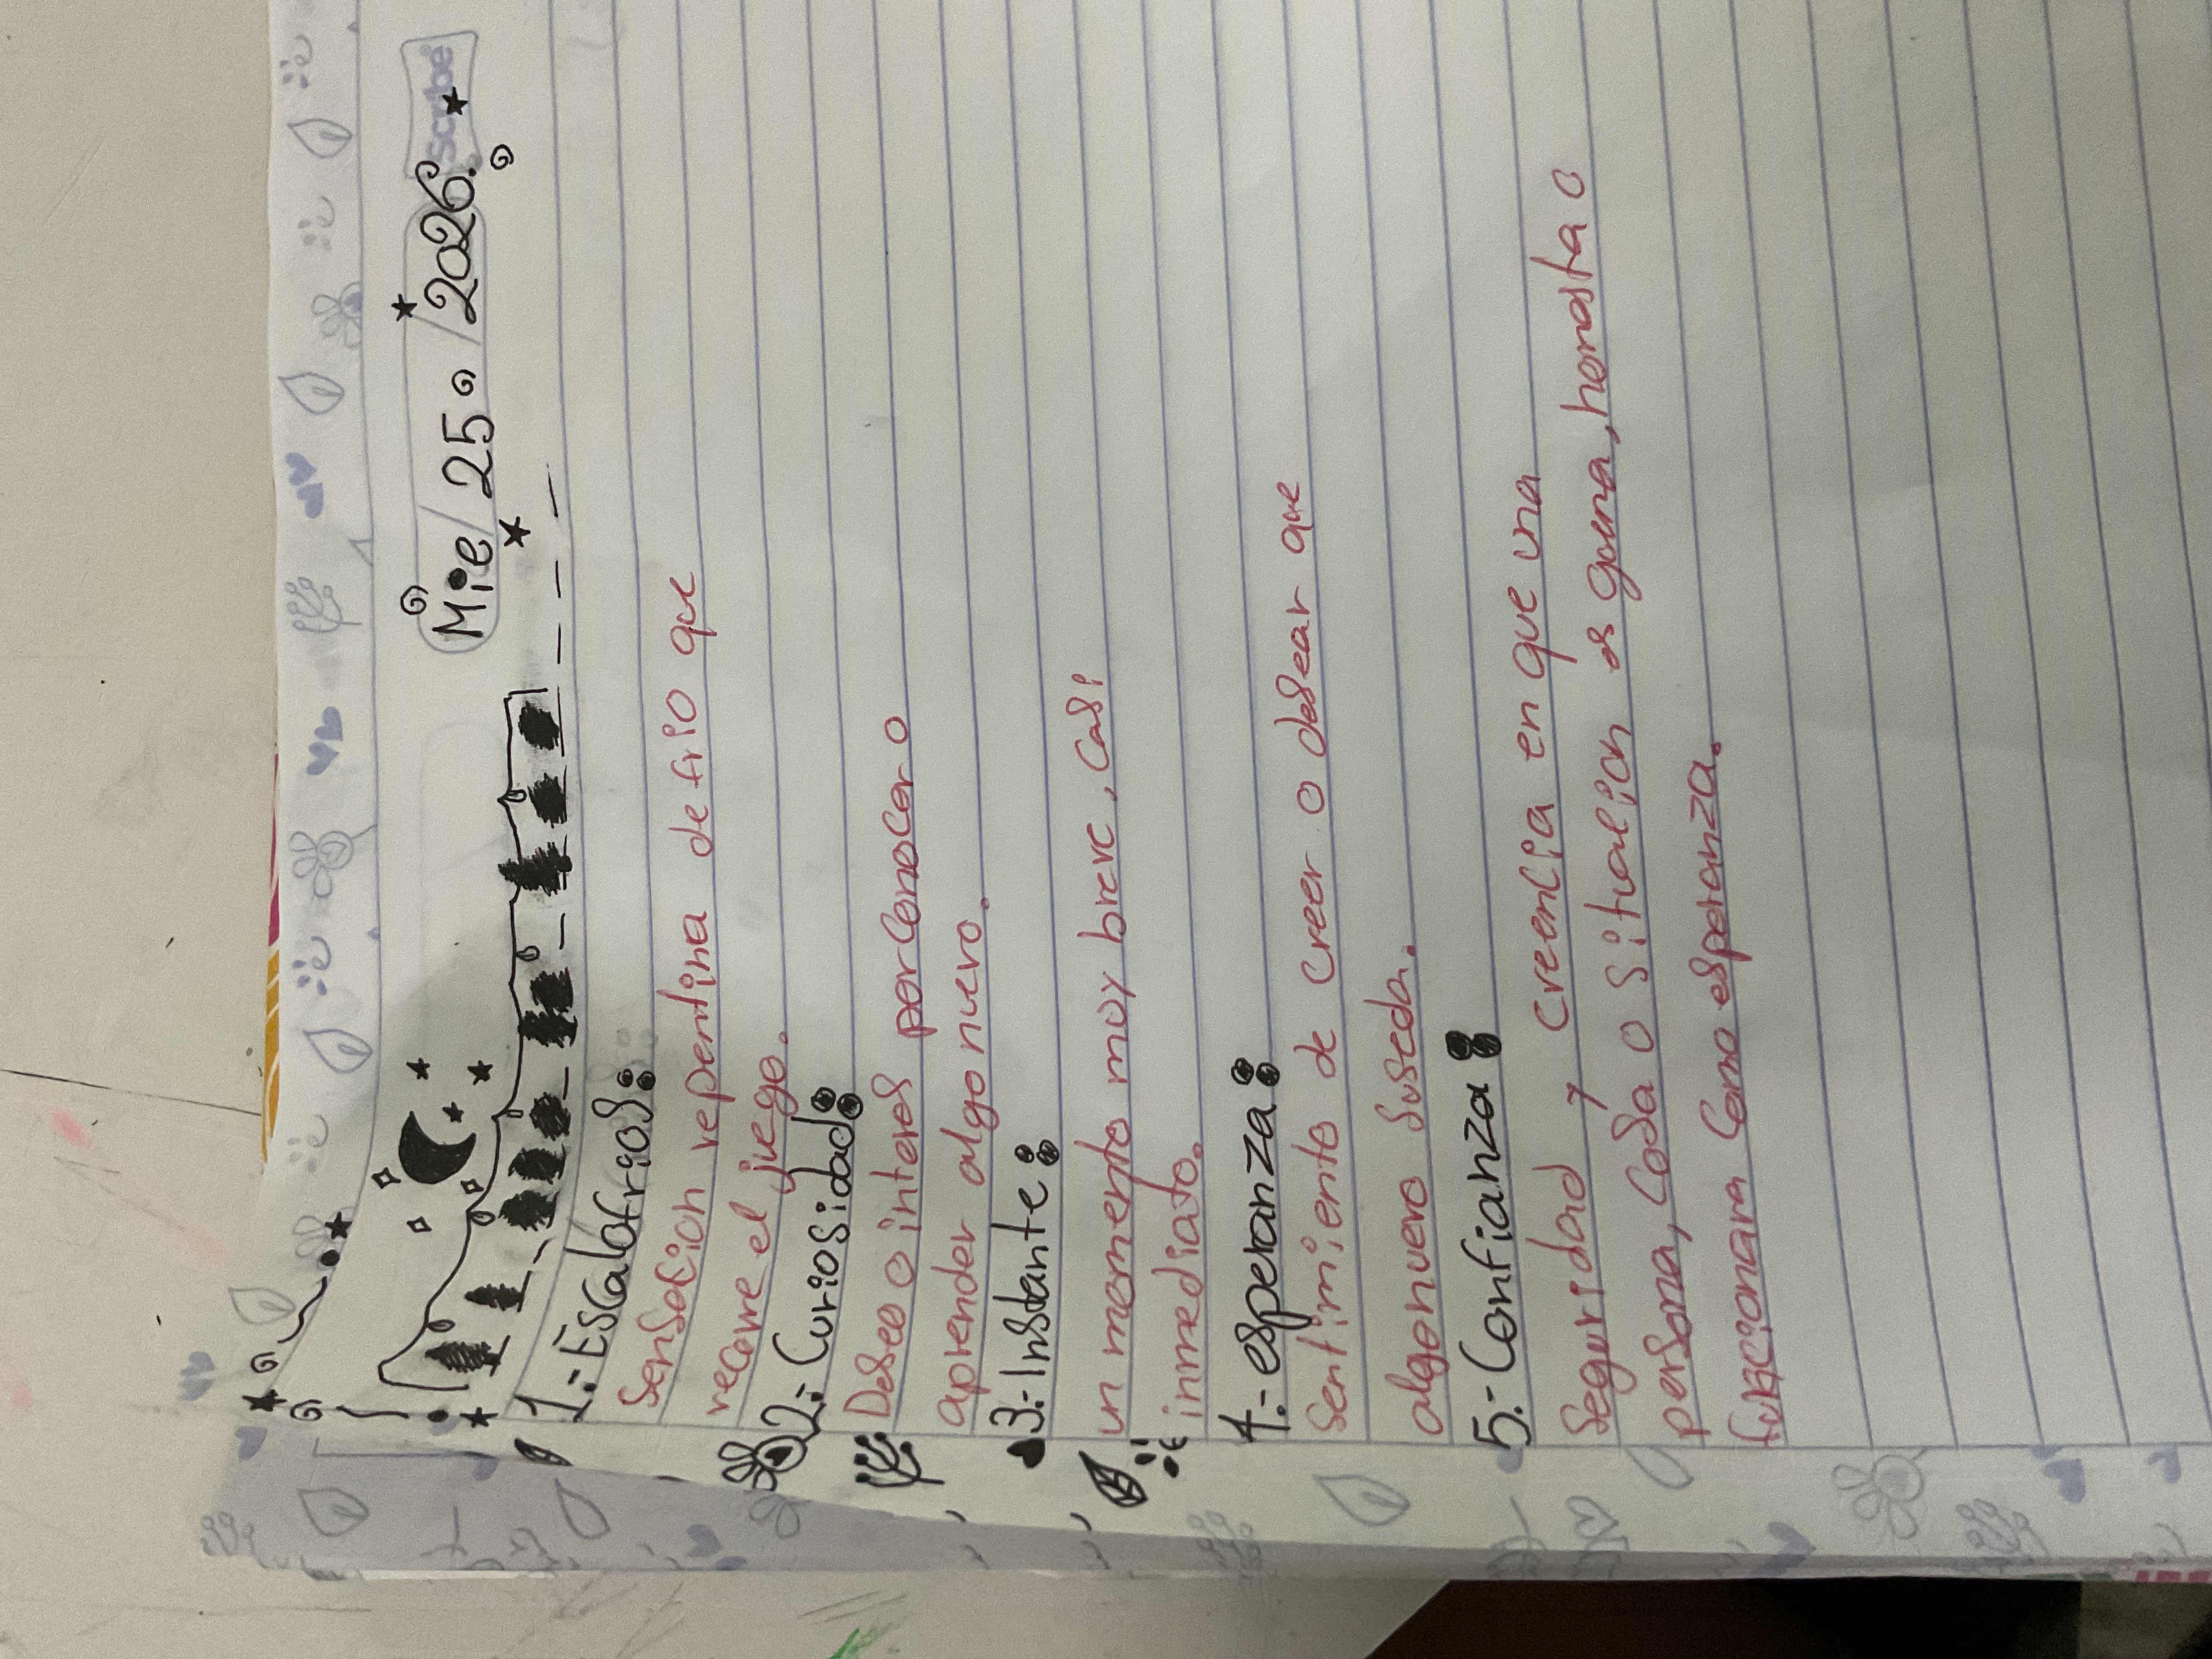 scribe
Mie/25/2026.
1.-Escalofrios:
Sensacion repentina de frio que
recorre el juego.
2.-Curiosidad:
Deseo o interes por conocer o
aprender algo nuevo.
3.-Instante:
un momento muy breve, casi
inmediato.
4.-esperanza:
Sentimiento de creer o desear que
algo nuevo suseda.
5.-Confianza:
Seguridad y creencia en que una
persona, cosa o situacion es guena, honesta o
funcionara como esperanza.